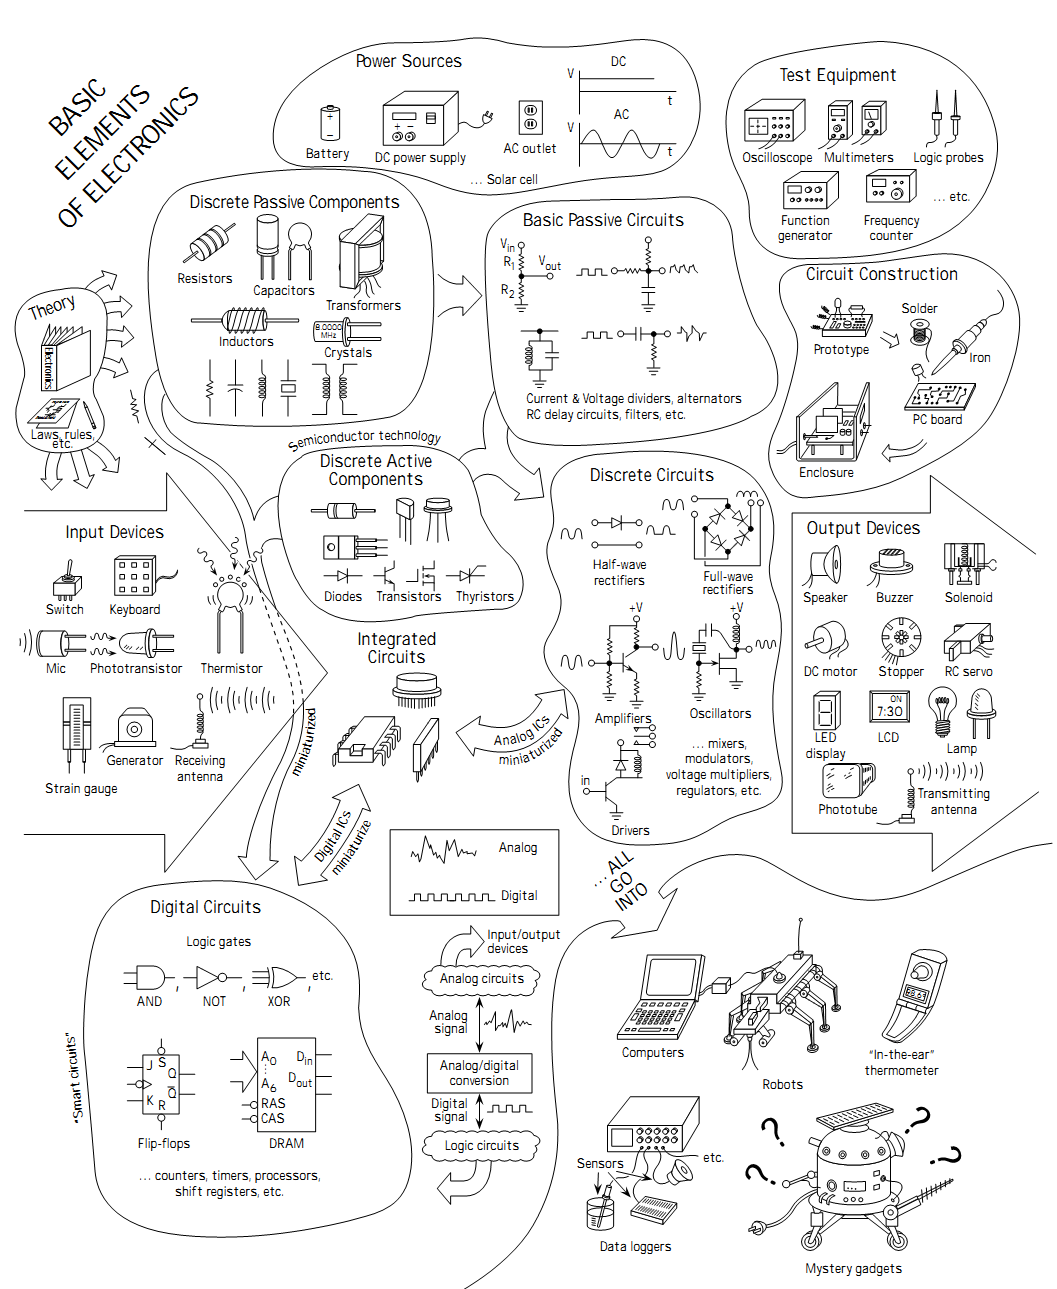 BASIC
ELEMENTS
OF ELECTRONICS
Power Sources
Battery
DC power supply
AC outlet
... Solar cell
DC
V
t
AC
V
t
Test Equipment
Oscilloscope
Multimeters
Logic probes
Function
generator
Frequency
counter
... etc.
Discrete Passive Components
Resistors
Capacitors
Transformers
Inductors
8.0000
MHz
Crystals
Basic Passive Circuits
Vin
R1
Vout
R2
Current & Voltage dividers, alternators
RC delay circuits, filters, etc.
Circuit Construction
Prototype
Solder
Iron
PC board
Enclosure
Theory
Electronics
Laws, rules,
etc.
Semiconductor technology
Discrete Active
Components
Diodes
Transistors
Thyristors
Discrete Circuits
Half-wave
rectifiers
Full-wave
rectifiers
+V
+V
Amplifiers
Oscillators
in
Drivers
... mixers,
modulators,
voltage multipliers,
regulators, etc.
Input Devices
Switch
Keyboard
Mic
Phototransistor
Thermistor
Strain gauge
Generator
Receiving
antenna
Integrated
Circuits
miniaturized
Analog ICs
miniaturized
Digital ICs
miniaturize
Output Devices
Speaker
Buzzer
Solenoid
DC motor
Stopper
RC servo
LED
display
ON
7:30
LCD
Lamp
Phototube
Transmitting
antenna
Analog
Digital
... ALL
GO
INTO
Digital Circuits
Logic gates
AND
,
NOT
,
XOR
,
etc.
"Smart circuits"
J
S
Q
K
R
Q̅
Flip-flops
A0
A6
RAS
CAS
Din
Dout
DRAM
... counters, timers, processors,
shift registers, etc.
Input/output
devices
Analog circuits
Analog
signal
Analog/digital
conversion
Digital
signal
Logic circuits
Computers
Robots
"In-the-ear"
thermometer
Sensors
etc.
Data loggers
? ? ? ?
Mystery gadgets